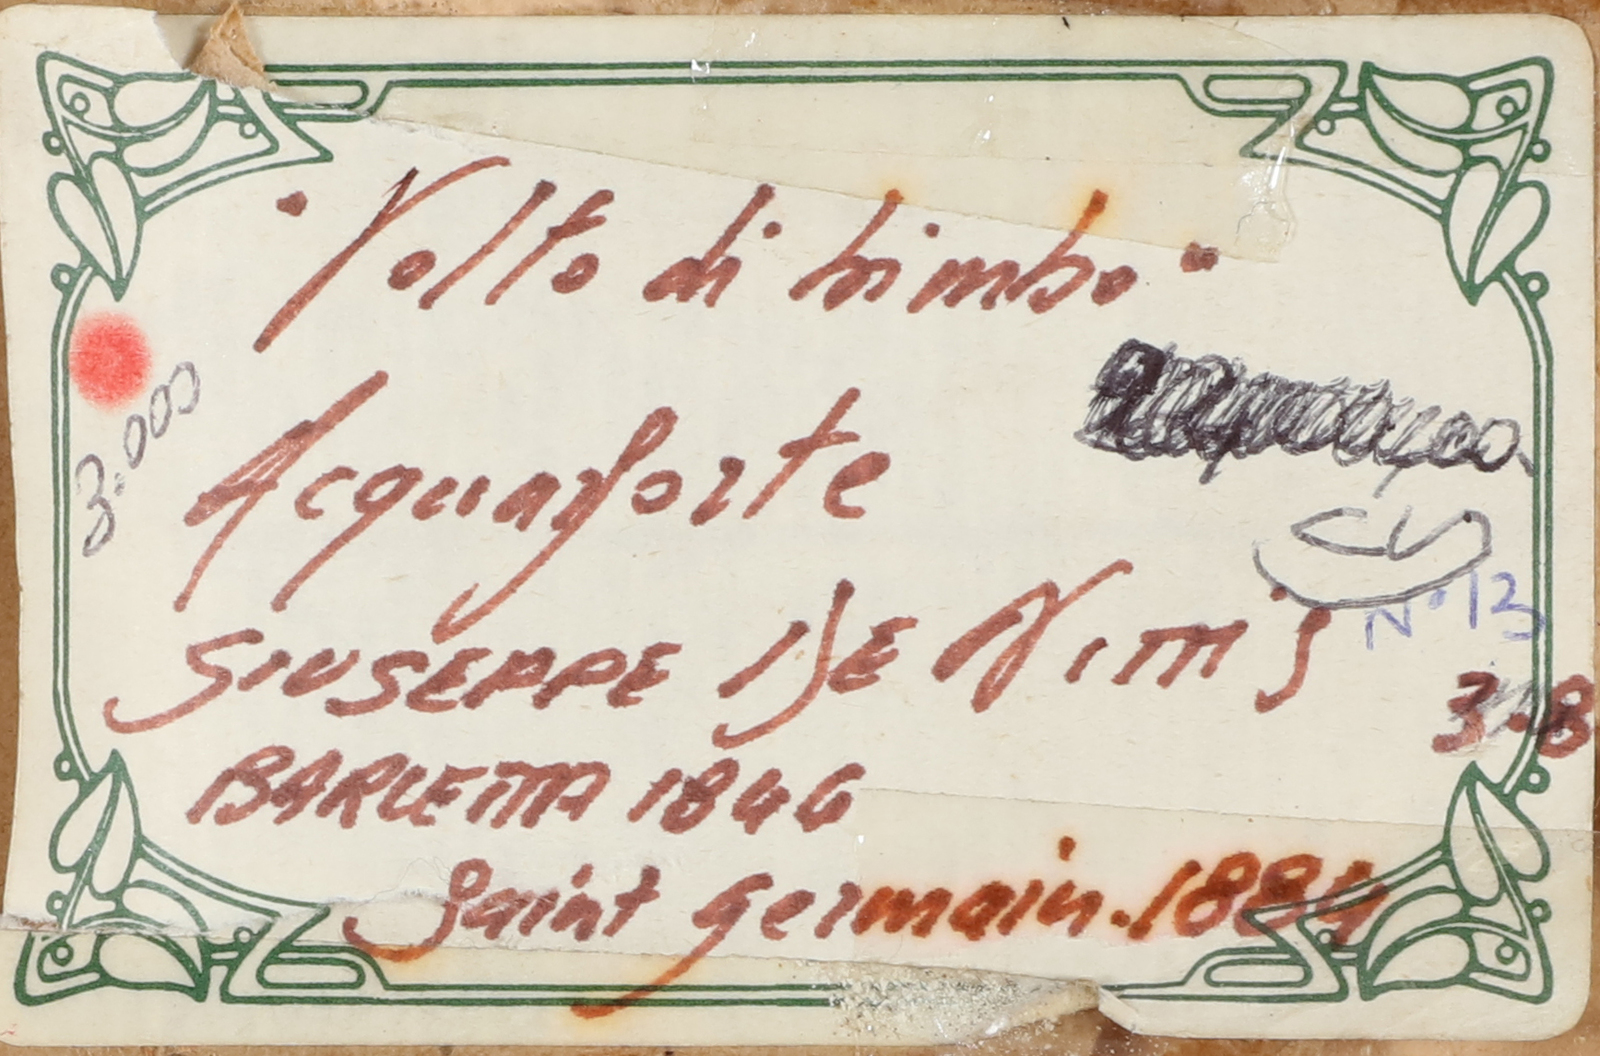 "Volto di bimbo"
3.000
Acquaforte
N° 13
GIUSEPPE DE NITTIS
3.8
BARLETTA 1846
Saint Germain. 1884